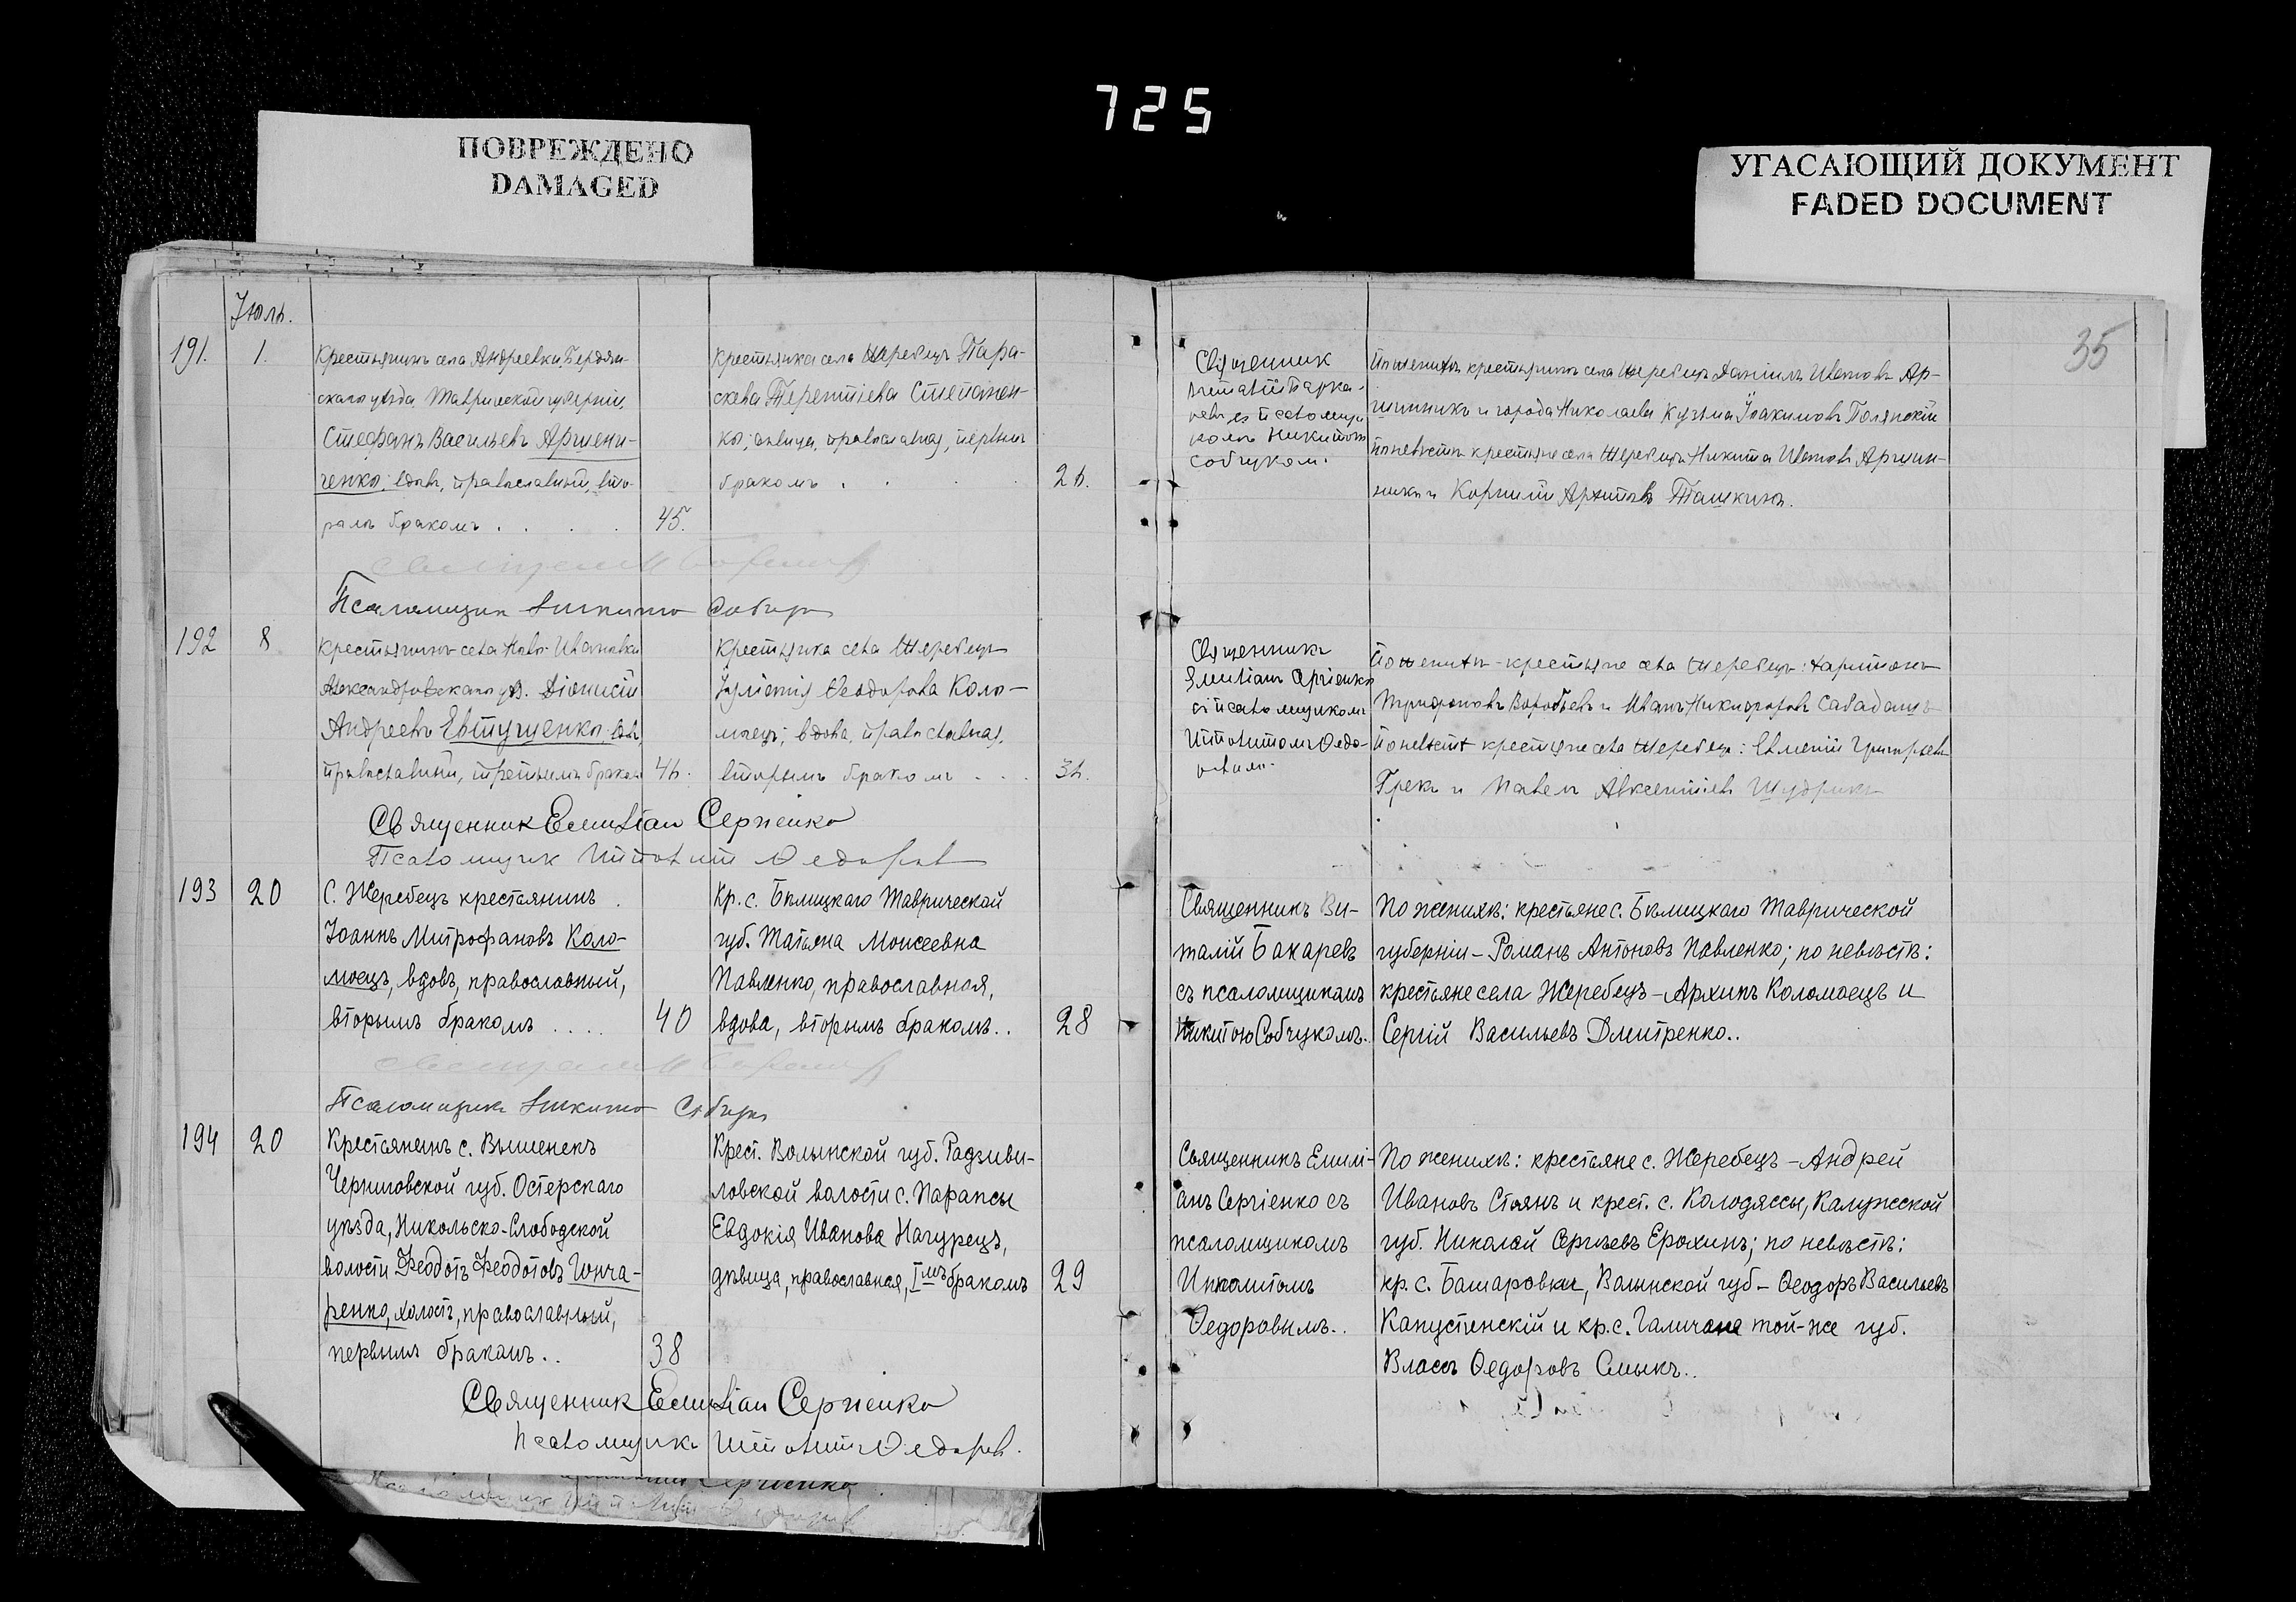 725
ПОВРЕЖДЕНО
DAMAGED
УГАСАЮЩИЙ ДОКУМЕНТ
FADED DOCUMENT
35
Іюль.
191.
1.
Крестьянинъ села Андреевки, Бердян-
скаго уѣзда, Таврической губерніи,
Стефанъ Васильевъ Аршени-
ченко, вдовъ, православный, вто-
рымъ бракомъ . . . .
45.
Крестьянка села Жеребецъ Пара-
скева Терентіева Степанен-
ко, дѣвица, православная, первымъ
бракомъ . . .
26.
Священник
съ псаломщи-
комъ Никитою
Собчуком.
По женихѣ крестьянинъ села Жеребецъ Даніилъ Ивановъ Ар-
шинникъ и города Николаева Кузьма Іоакимовъ Полянскій
по невѣстѣ крестьяне села Жеребецъ Никита Ивановъ Аршин-
никъ и Корнилій Архиповъ Ташкинъ.
Псаломщик Никита Собчук
192
8
Крестьянинъ села Ново-Ивановки
Александровскаго уѣз. Діонисій
Андреевъ Евтушенко, вдв.,
православный, третьимъ браком
46.
Крестьянка села Жеребецъ
Іуліанія Ѳеодорова Коло-
моецъ, вдова, православная,
вторымъ бракомъ . . .
36.
Священникъ
Емиліанъ Сергіенко
съ псаломщикомъ
Ипполитомъ Ѳедо-
ровым.
По женихѣ - крестьяне села Жеребецъ: Харитонъ
Трифоновъ Воробьевъ и Иванъ Никифоровъ Сабадашъ
По невѣстѣ крестьяне села Жеребецъ: Евменій Григорьевъ
Грекъ и Павелъ Авксентіевъ Щудрикъ
Священник Емиліан Сергіенко
Псаломщик Ипполит Ѳедоров
193
20
С. Жеребецъ крестьянинъ
Іоаннъ Митрофановъ Коло-
моецъ, вдовъ, православный,
вторымъ бракомъ . . . .
40
Кр. с. Бѣлицкаго Таврической
губ. Татьяна Моисеевна
Павленко, православная,
вдова, вторымъ бракомъ . .
28
Священникъ Ви-
талій Бакаревъ
съ псаломщикомъ
Никитою Собчукомъ.
По женихѣ: крестьяне с. Бѣлицкаго Таврической
губерніи - Романъ Антоновъ Павленко; по невѣстѣ:
крестьяне села Жеребецъ - Архипъ Коломоецъ и
Сергій Васильевъ Дмитренко..
Псаломщикъ Никита Собчук
194
20
Крестьянинъ с. Вышенекъ
Черниговской губ. Остерскаго
уѣзда, Никольско-Слободской
волости Феодотъ Феодотовъ Гонча-
ренко, холостъ, православный,
первымъ бракомъ..
38
Крест. Волынской губ. Радзиви-
ловской волости с. Парапсы
Евдокія Иванова Нагурецъ,
дѣвица, православная, Iмъ бракомъ
29
Священникъ Емилі-
анъ Сергіенко съ
псаломщикомъ
Ипполитомъ
Ѳедоровымъ..
По женихѣ: крестьяне с. Жеребецъ - Андрей
Ивановъ Стоянъ и крест. с. Колодяссы, Калужской
губ. Николай Сергѣевъ Ерохинъ; по невѣстѣ:
кр. с. Башаровки, Волынской губ - Ѳеодоръ Васильевъ
Капустинскій и кр. с. Галичане той-же губ.
Власъ Ѳедоровъ Смыкъ..
Священник Емиліан Сергіенко
Псаломщикъ Ипполитъ Ѳедоров.
Сергіенко